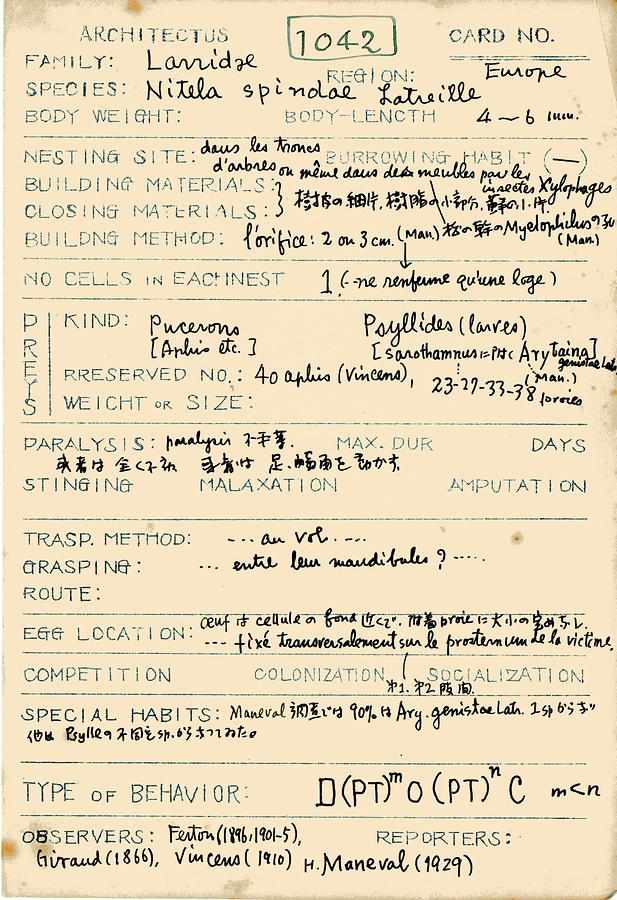 ARCHITECTUS 1042 CARD NO.
FAMILY: Larridae REGION: Europe
SPECIES: Nitela spindae Latreille
BODY WEIGHT: BODY-LENGTH 4~6 mm.
NESTING SITE: dans les troncs BURROWING HABIT (—)
d'arbres ou même dans des meubles par les
insectes Xylophages
BUILDING MATERIALS: 樹皮の細片, 樹脂の小部分, 蘚の小片
CLOSING MATERIALS:
BUILDNG METHOD: l'orifice: 2 ou 3 cm. (Man.) 松の幹のMyelophilusの孔
(Man.)
NO CELLS IN EACHNEST 1 (--ne renferme qu'une loge)
PREYS
KIND: Pucerons Psyllides (larves)
[Aphis etc.] [Sarothamnus Arytaina]
genistae Latr.
(Man.)
RRESERVED NO.: 40 aphis (Vincens), 23-27-33-38 proies
WEICHT OR SIZE:
PARALYSIS: paralysis 不平等. MAX. DUR DAYS
或者は全く不動 或者は足,触角を動かす
STINGING MALAXATION AMPUTATION
TRASP. METHOD: --- au vol. ---
GRASPING: ... entre leur mandibules? -----
ROUTE:
œuf は cellule の fond 近くで, 附着proieに大小の
EGG LOCATION: --- fixé transversalement sur le prosternum de la victime.
第1.第2腹面.
COMPETITION COLONIZATION SOCIALIZATION
SPECIAL HABITS: Maneval 調査では 90% は Ary. genistae Latr. 1sp から
他は Psylle の不同定sp.から
TYPE OF BEHAVIOR: D(PT)ᵐO(PT)ⁿC m<n
OBSERVERS: Ferton (1896, 1901-5), REPORTERS:
Giraud (1866), Vincens (1910) H. Maneval (1929)